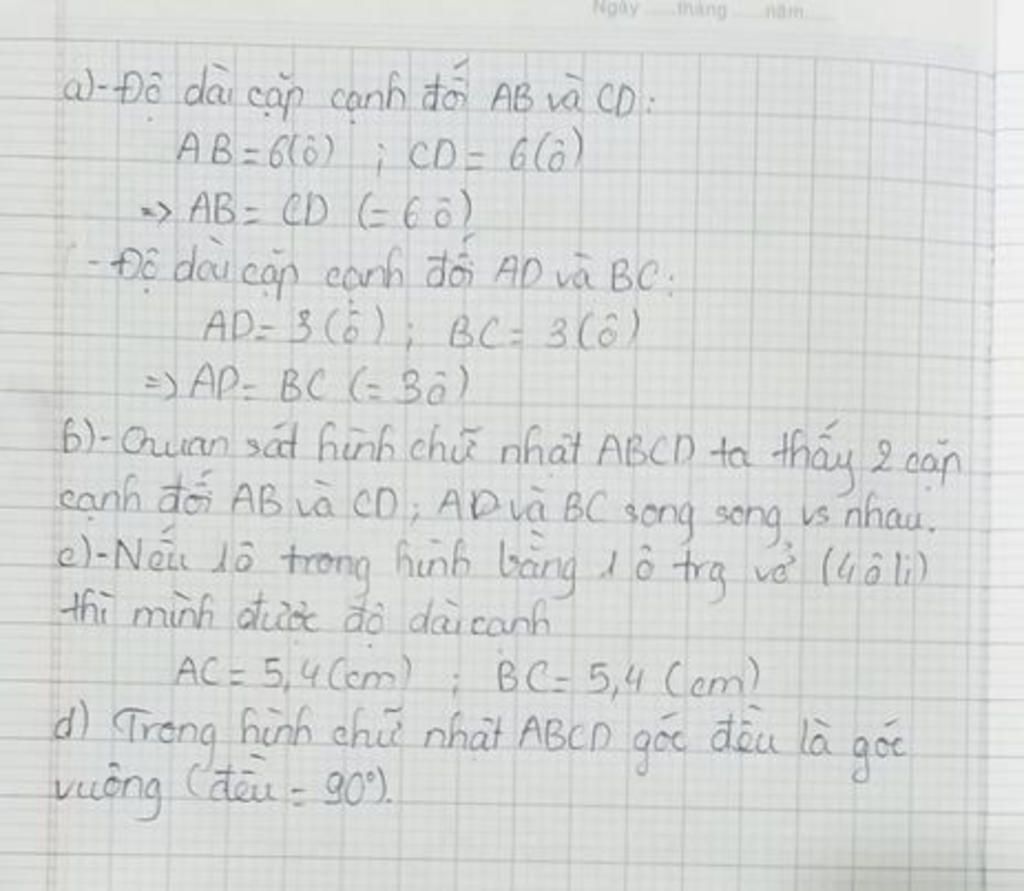 Ngày ...... tháng ...... năm ......
a)-Độ dài cặp cạnh đối AB và CD:
AB = 6(ô) ; CD = 6(ô)
=> AB = CD (= 6 ô)
- Độ dài cặp cạnh đối AD và BC:
AD = 3 (ô) ; BC = 3 (ô)
=> AD = BC (= 3ô)
b)-Quan sát hình chữ nhật ABCD ta thấy 2 cặp
cạnh đối AB và CD; AD và BC song song vs nhau.
c)-Nếu 1ô trong hình bằng 1 ô trg vở (4 ô li)
thì mình được độ dài cạnh
AC = 5,4 (cm) ; BC = 5,4 (cm)
d) Trong hình chữ nhật ABCD góc đều là góc
vuông (đều = 90°).